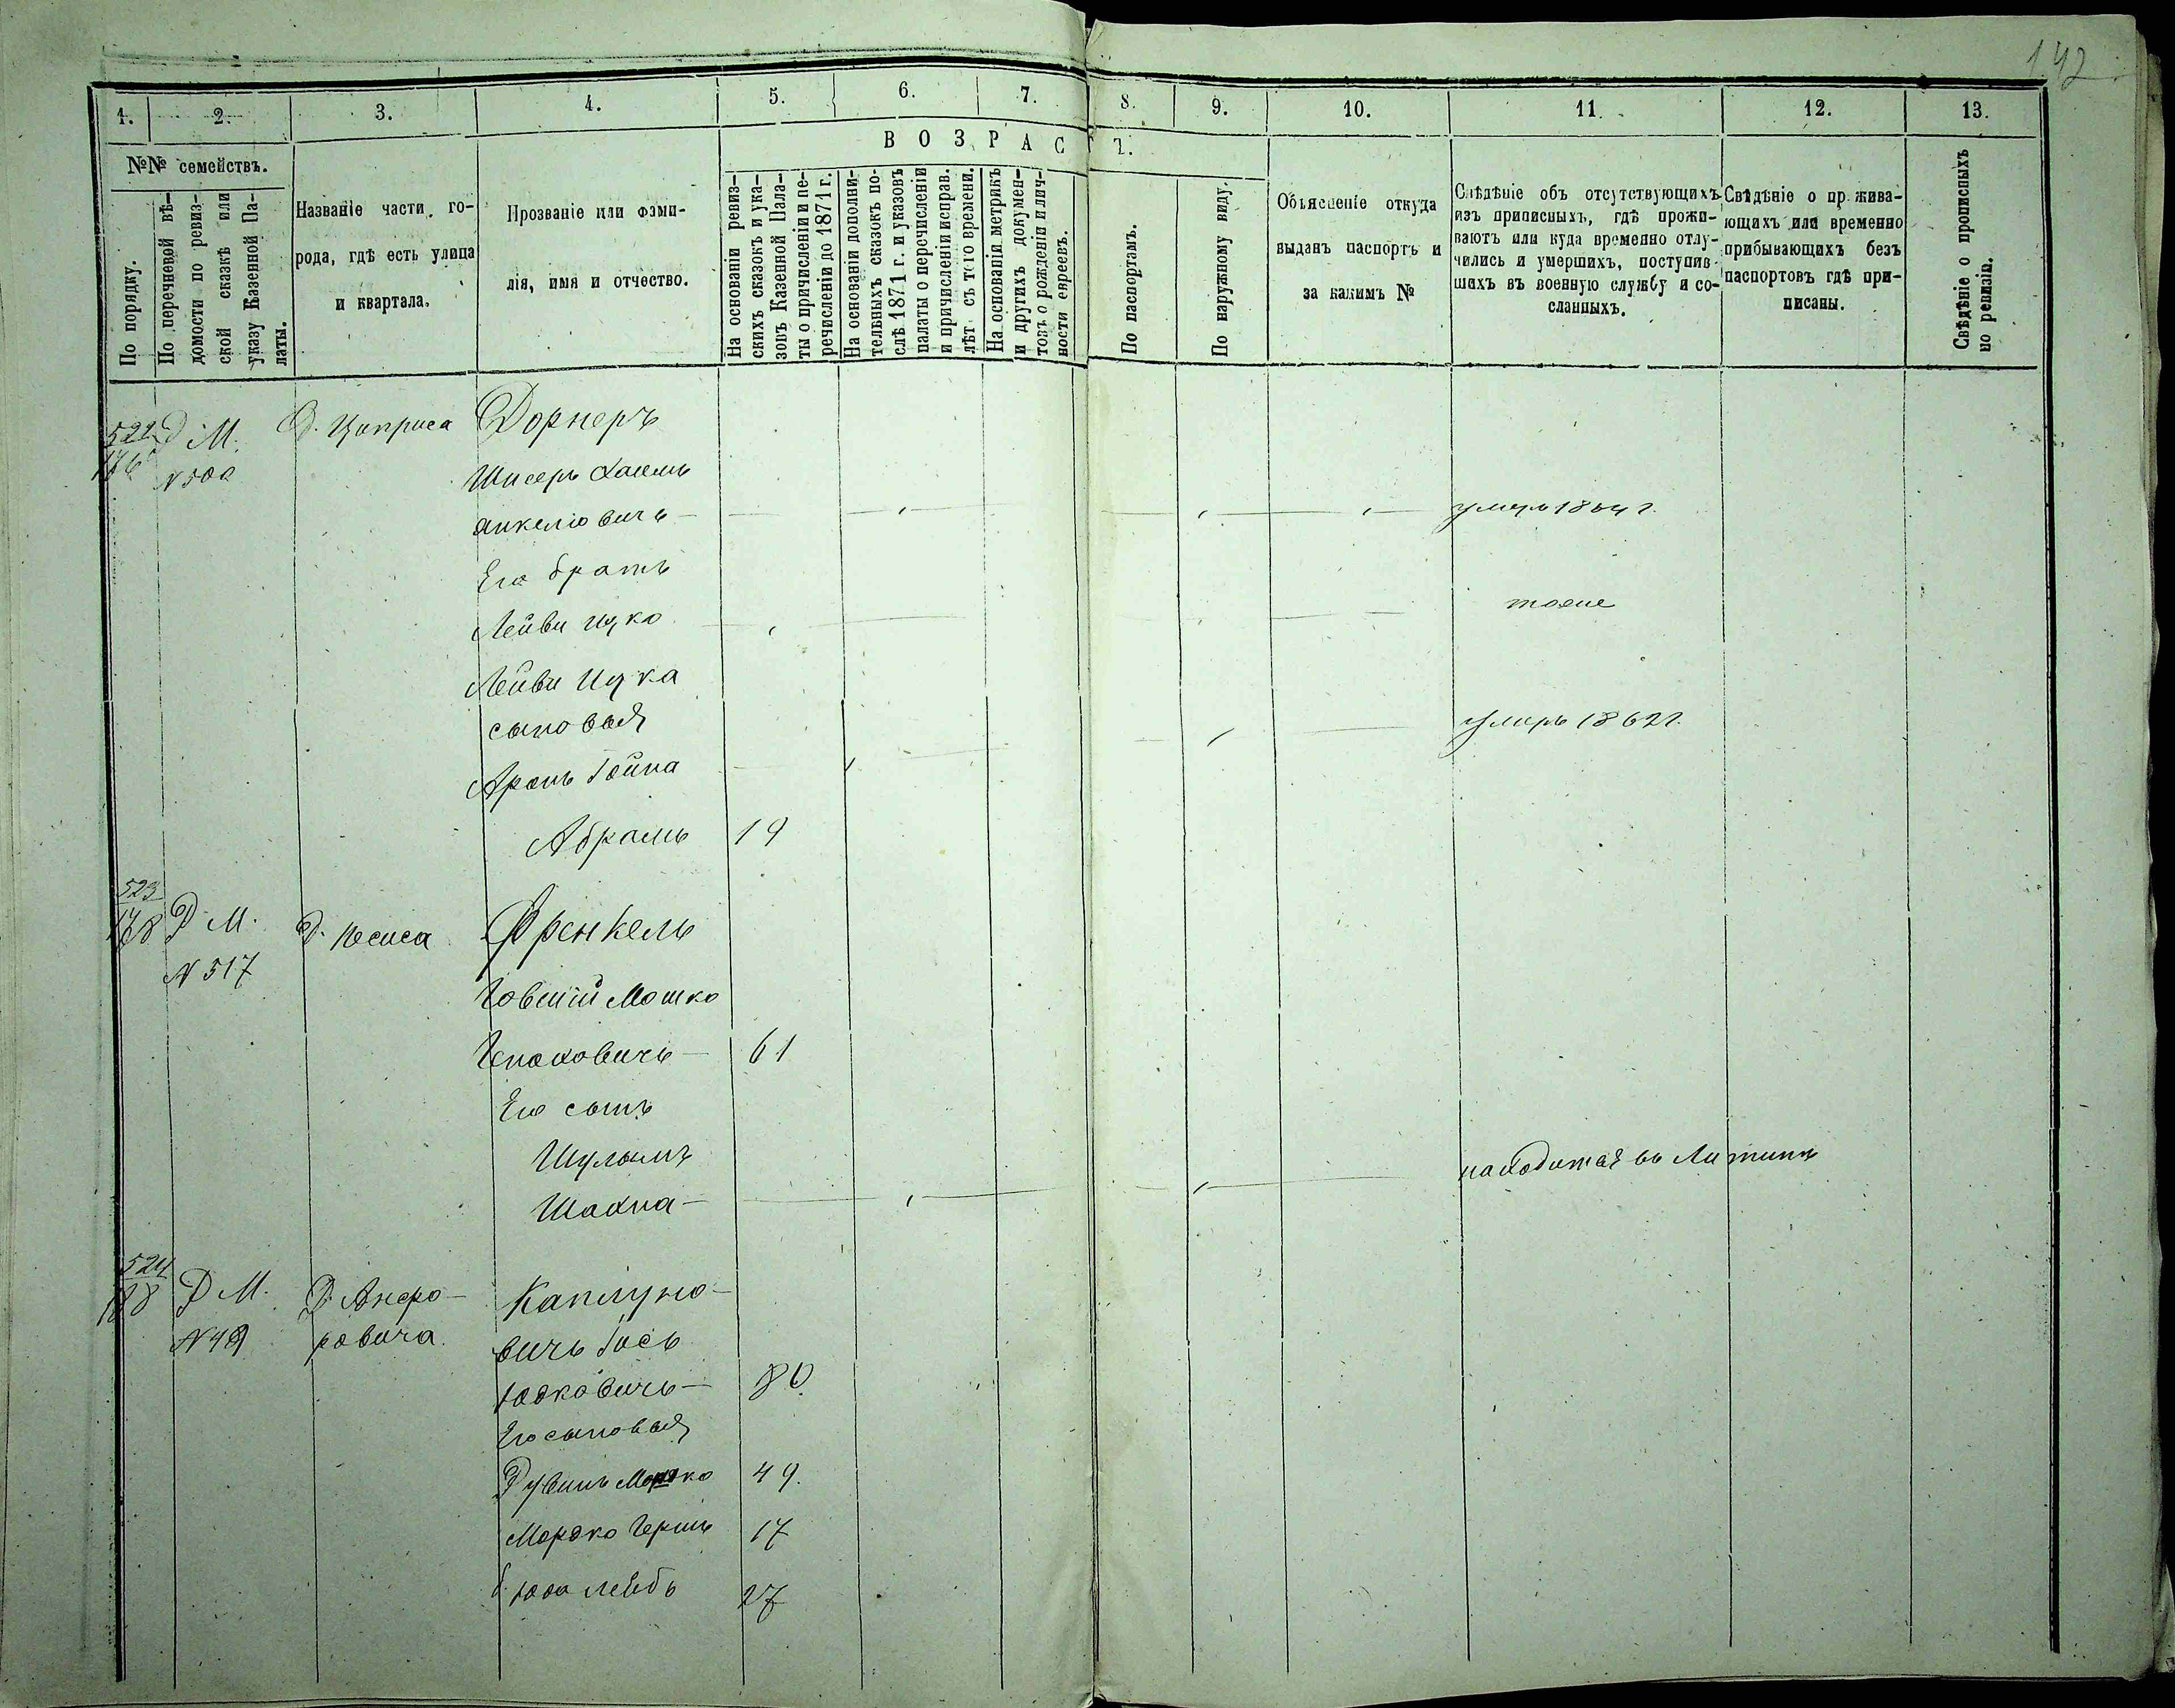 142
1. 2. 3. 4. 5. 6. 7. 8. 9. 10. 11. 12. 13.
В О З Р А С Т.
№№ семействъ.
По порядку.
По перечневой вѣ-
домости по ревиз-
ской сказкѣ или
указу Казенной Па-
латы.
Названіе части, го-
рода, гдѣ есть улица
и квартала.
Прозваніе или фами-
лія, имя и отчество.
На основаніи ревиз-
скихъ сказокъ и ука-
зовъ Казенной Пала-
ты о причисленіи и пе-
речисленіи до 1871 г.
На основаніи дополни-
тельныхъ сказокъ по-
слѣ 1871 г. и указовъ
палаты о перечисленіи
и причисленіи исправ.
лѣт съ того времени.
На основаніи метрикъ
и другихъ докумен-
товъ о рожденіи и лич-
ности евреевъ.
По паспортамъ.
По наружному виду.
Объясненіе откуда
выданъ паспортъ и
за какимъ №
Свѣдѣніе объ отсутствующихъ
изъ приписныхъ, гдѣ прожи-
ваютъ или куда временно отлу-
чились и умершихъ, поступив-
шихъ въ военную службу и со-
сланныхъ.
Свѣдѣніе о прожива-
ющихъ или временно
прибывающихъ безъ
паспортовъ гдѣ при-
писаны.
Свѣдѣніе о прописныхъ
по ревизіи.
522 Д. М. Д. Циприса Дорнеръ
N 500 Шисеръ Хаимъ
Янкеліовичъ — умеръ 1864 г.
Его братъ
Лейви Ицко тоже
Лейви Ицка
сыновья умеръ 1862 г.
Аронъ Гойна
Абрамъ 19
523
178 Д М. Д. Песиса Френкель
N 517
Говшій Мошко
Геноховичъ — 61
Его сынъ
Шуламъ находится въ Литинѣ
Шахна —
524
188 Д М. Д. Анеро- Каплуно-
N 49 ровича. вичъ Іось
Юдковичъ — 80.
Его сыновья
Рувинъ Мошко 49.
Мордко Гершъ 17
Юда Лейбъ 27